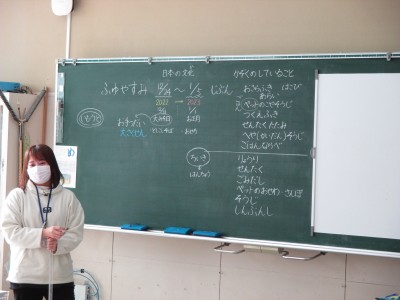 日本の文化
ふゆやすみ 12/24 ～ 1/5 じぶん
2022 → 2023
12/31 1/1
大みそか お正月
としこそば おせち
おてつだい
大さくせん
かぞくのしていること
おさらふき はこび
あらい
ペットのおそうじ
つくえふき
せんたくたたみ
へや(かいだん)そうじ
ごはんならべ
りょうり
せんたく
ごみだし
ペットのおせわ さんぽ
そうじ
しんぶんし